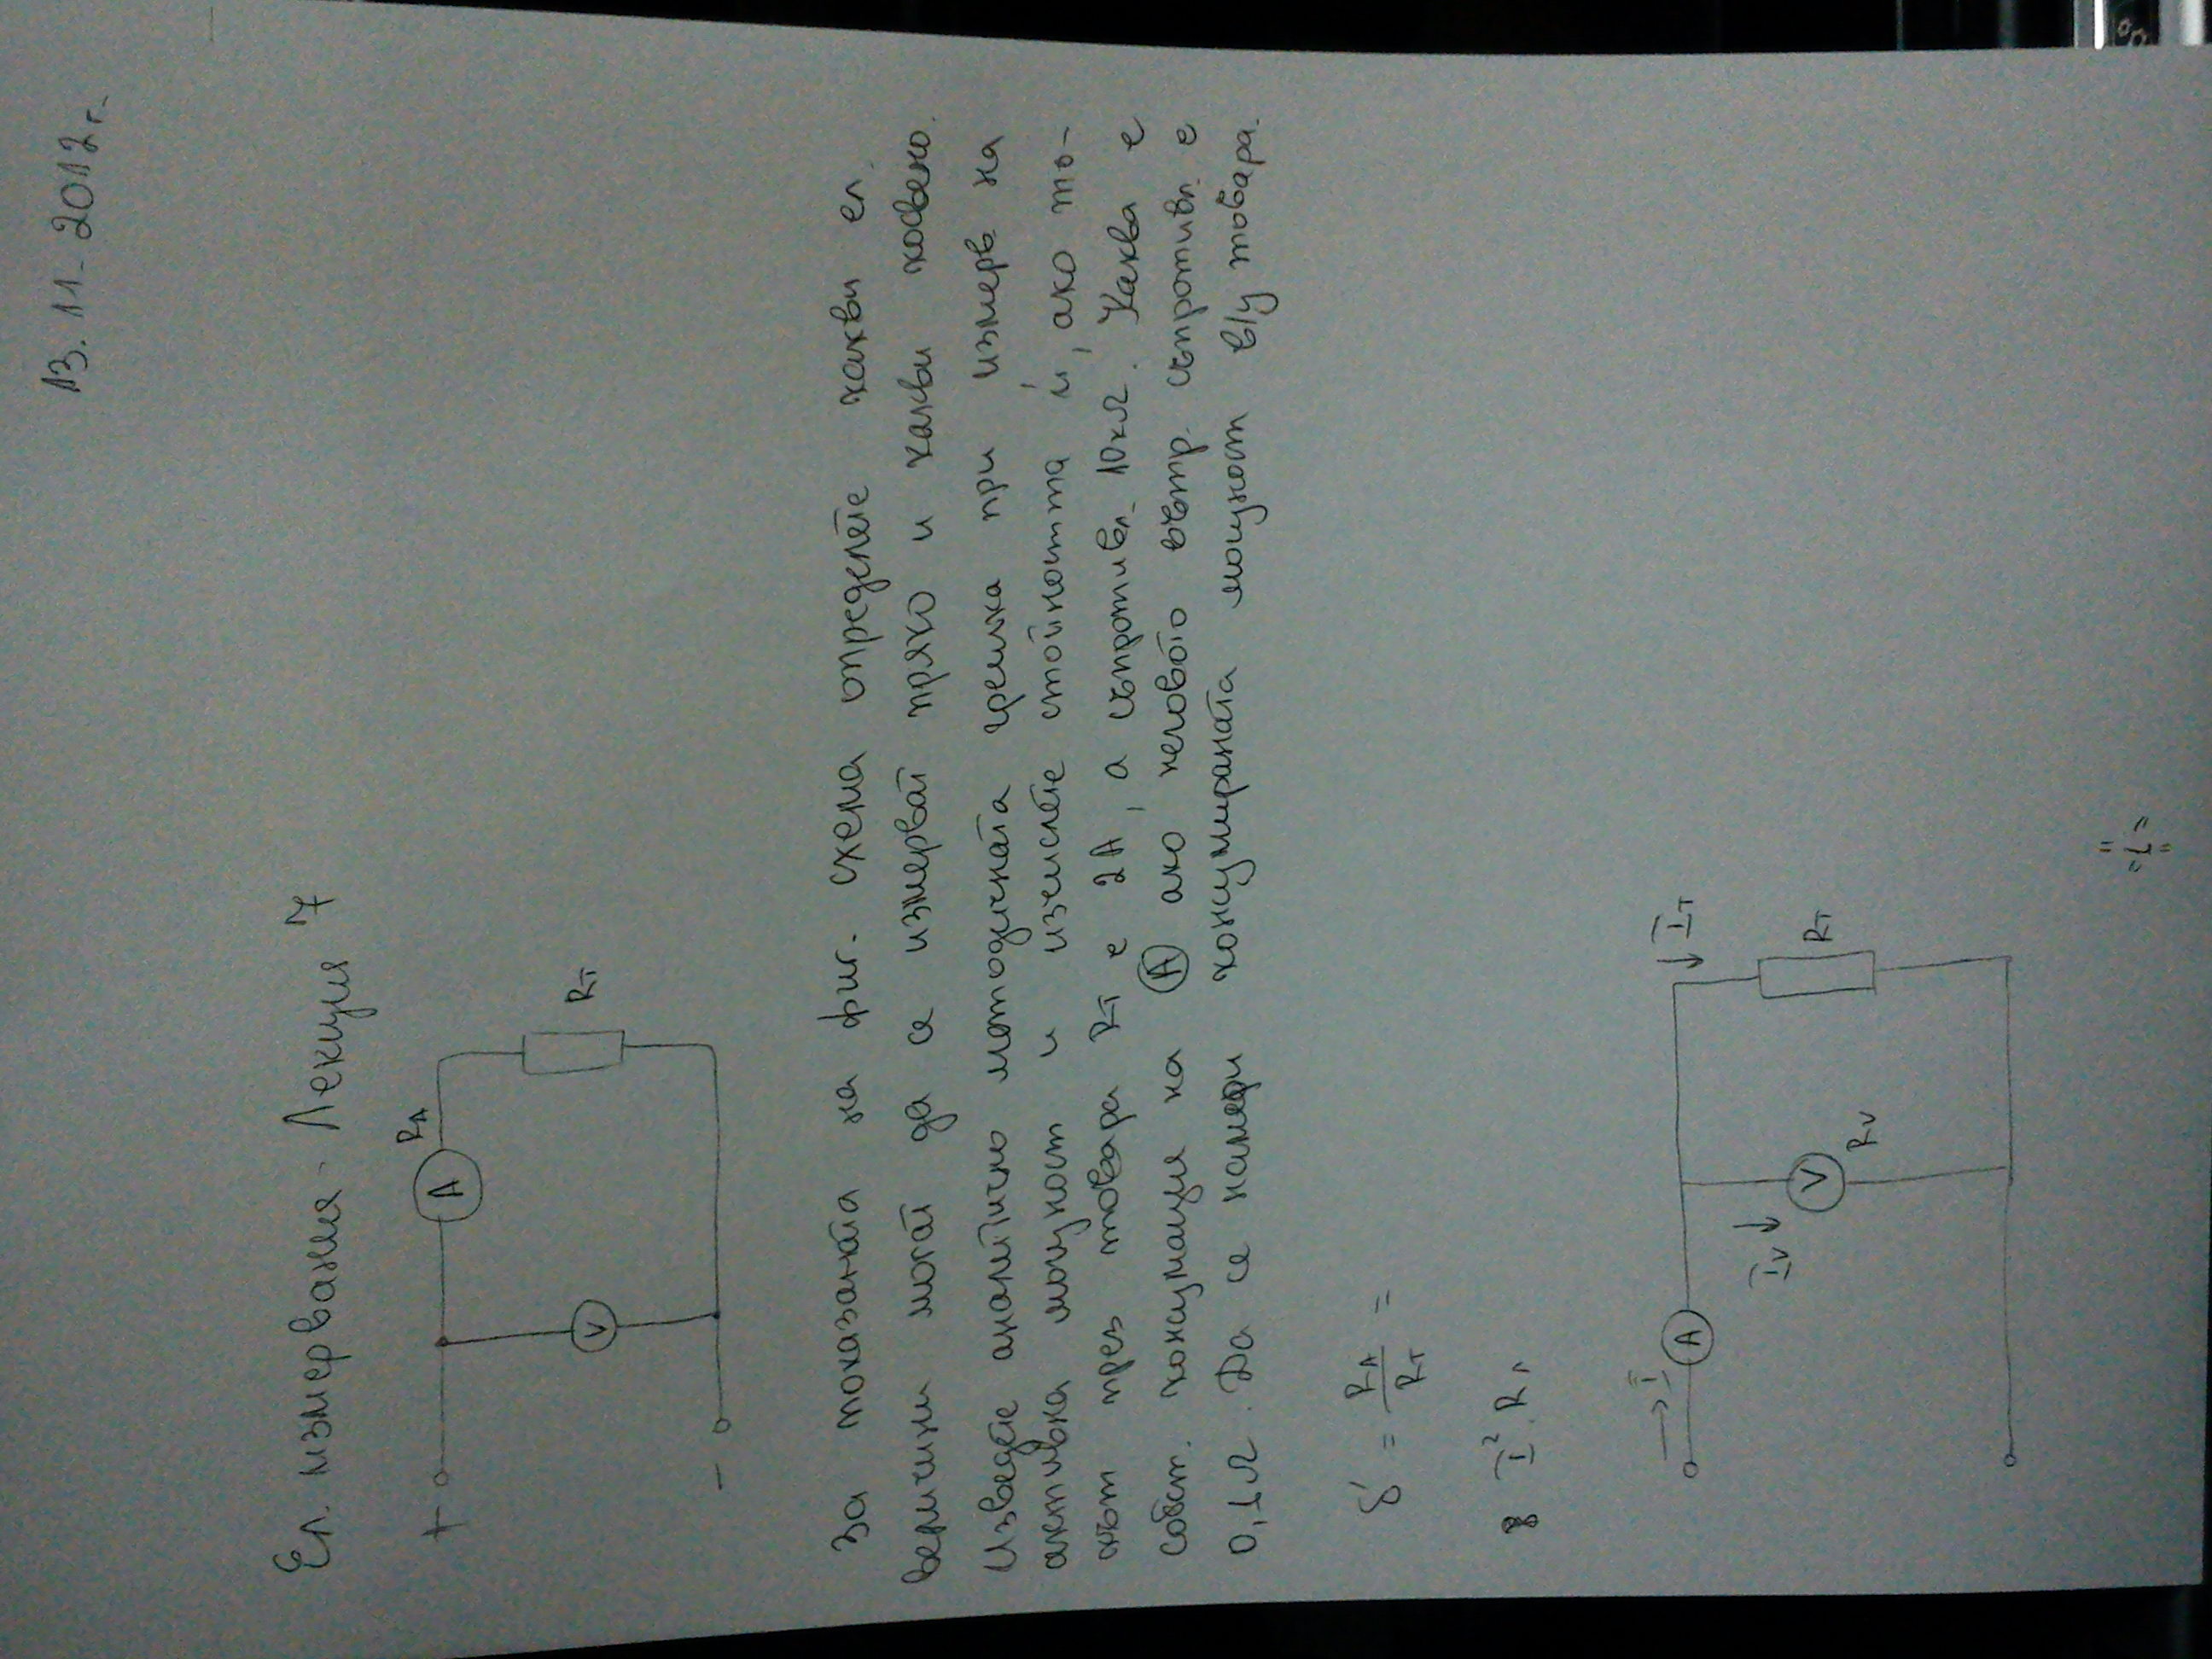 13.11.2012г.
Ел. измервания - Лекция 7
+
A
RА
V
RТ
-
За показаната на фиг. схема определете какви ел.
величини могат да се измерват пряко и какви косвено.
Изведете аналитично методичната грешка при измерв. на
активна мощност и изчислете стойността ѝ, ако то-
кът през товара RТ е 2А, а съпротивл. 10кΩ. Каква е
собст. консумация на Ⓐ ако неговото вътр. съпротивл. е
0,1Ω. Да се намери консумираната мощност в/у товара.
δ' = RА/RТ =
I².RА
→ I
A
IV
V
RV
IТ
RТ
"1"